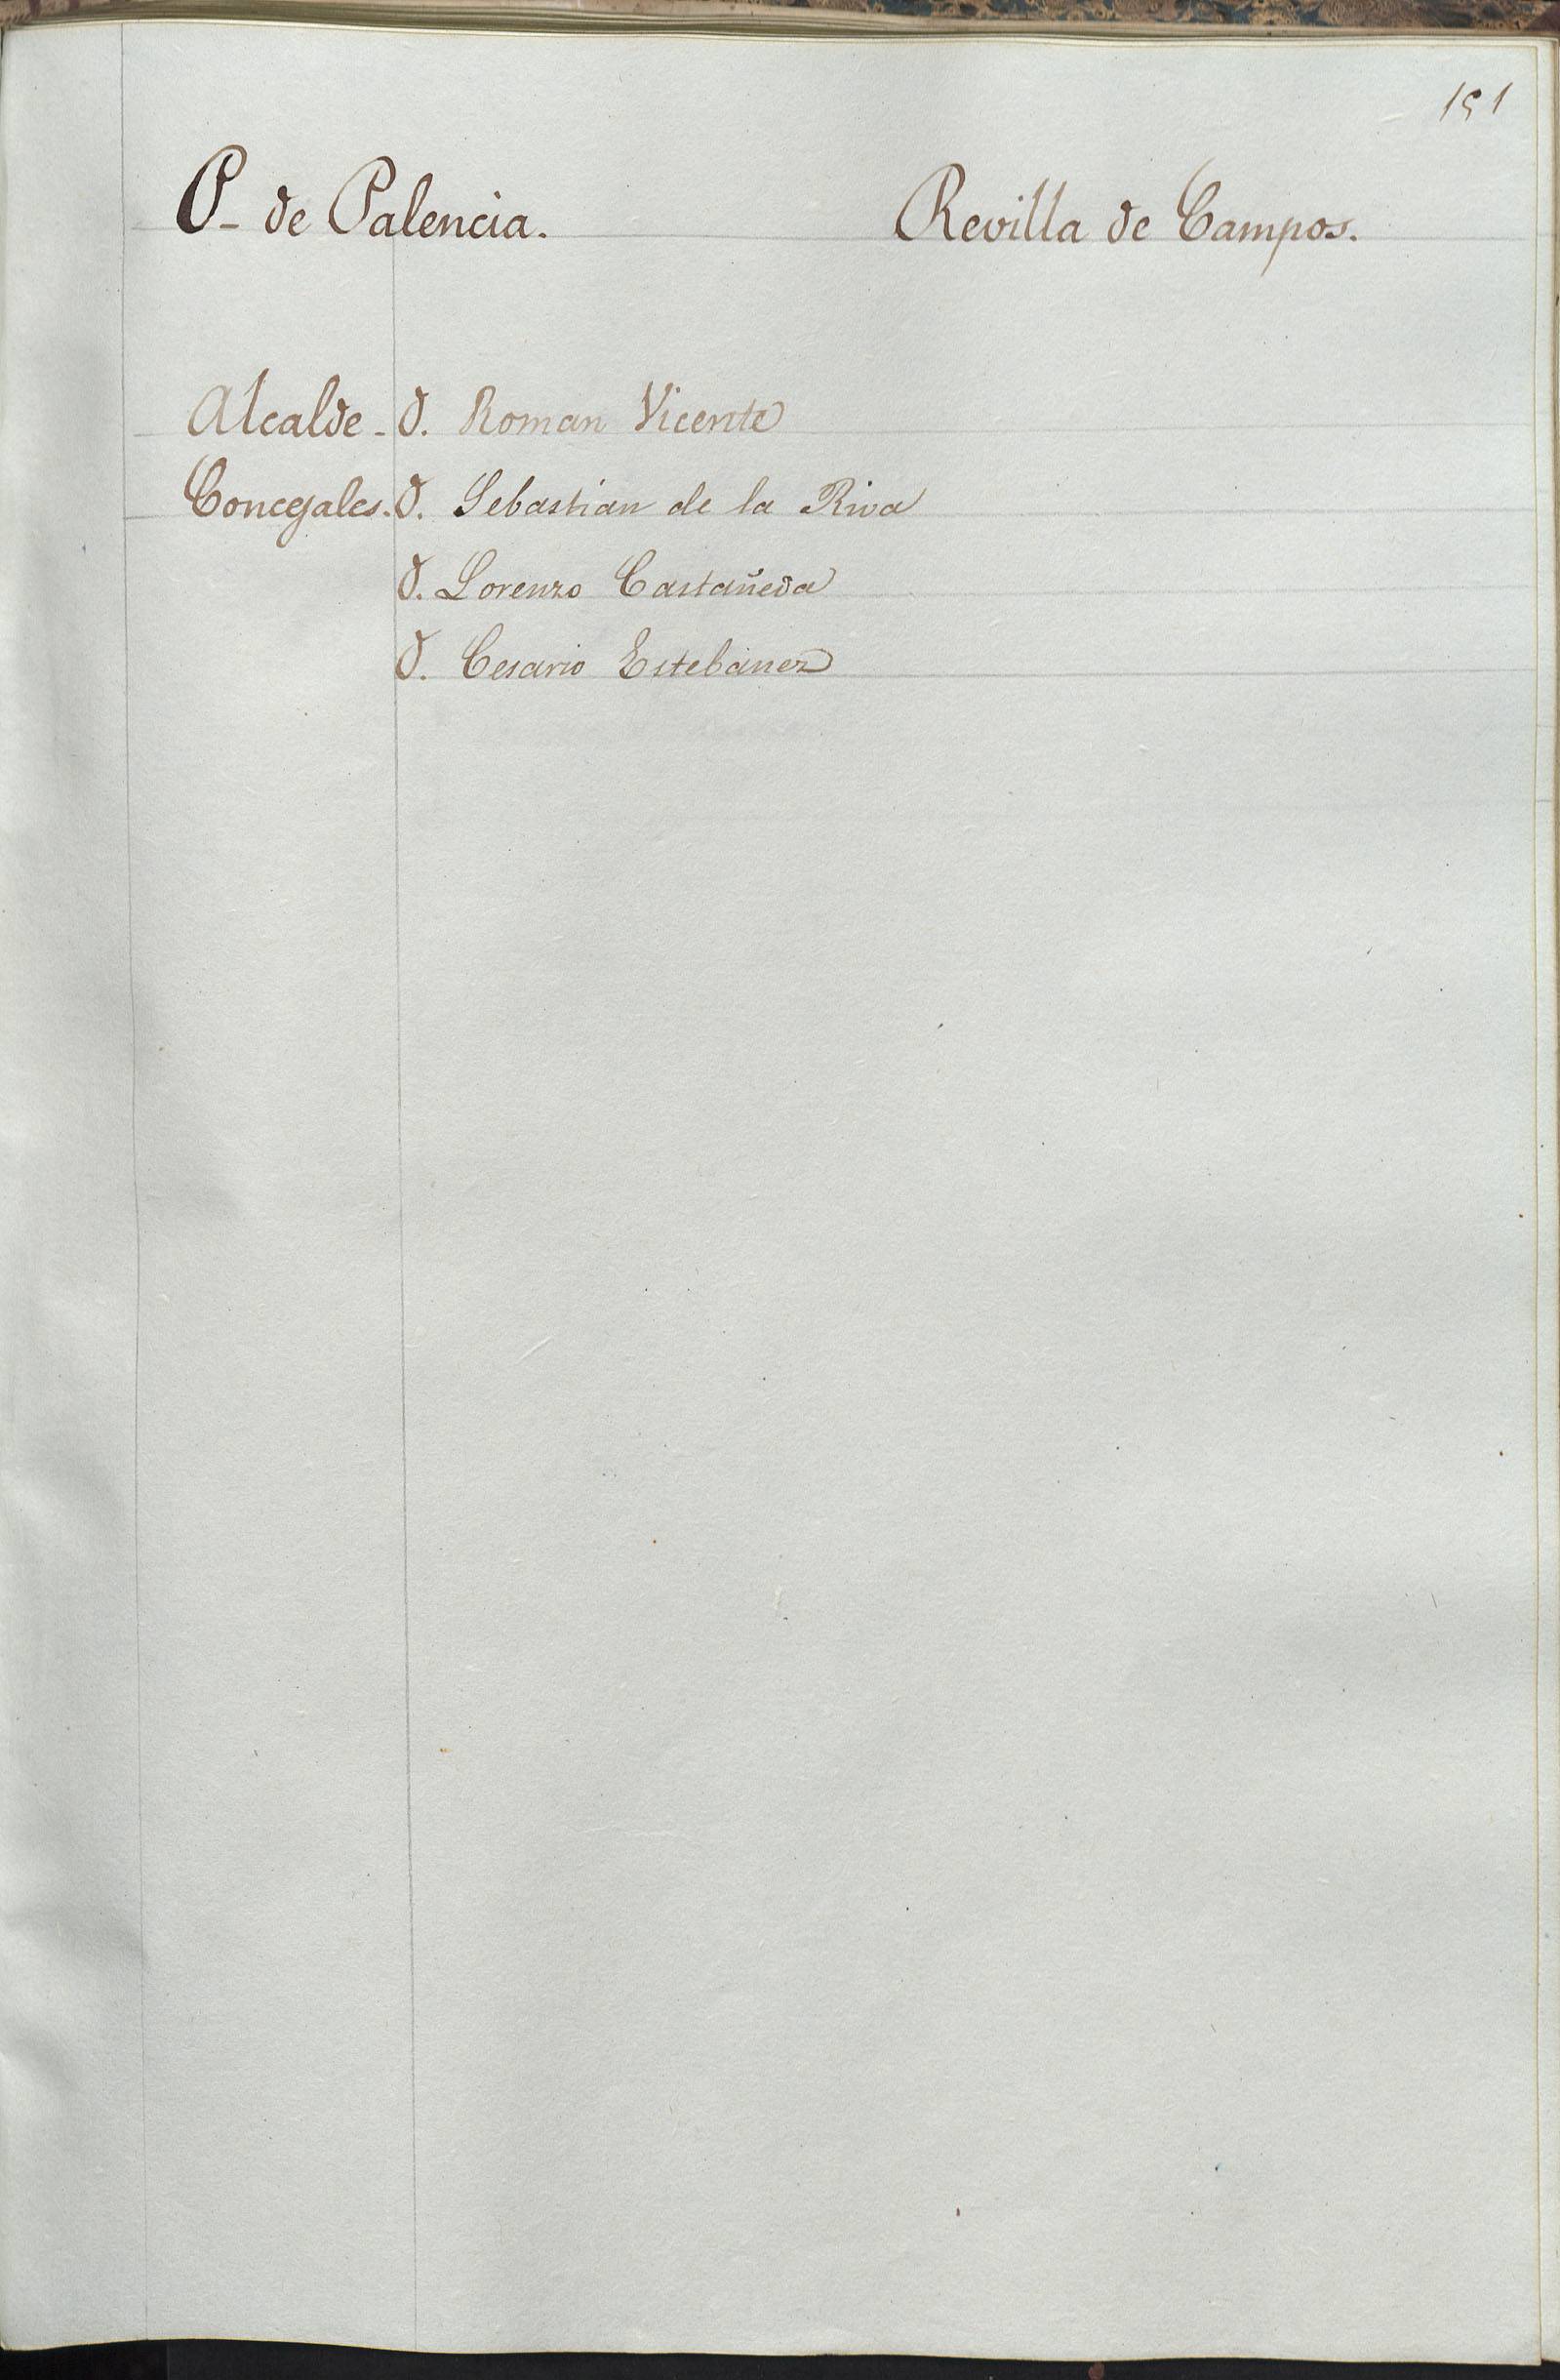 151
P- de Palencia. Revilla de Campos.
Alcalde - D. Roman Vicente
Concejales. D. Sebastian de la Riva
D. Lorenzo Castañeda
D. Cesario Estebanez